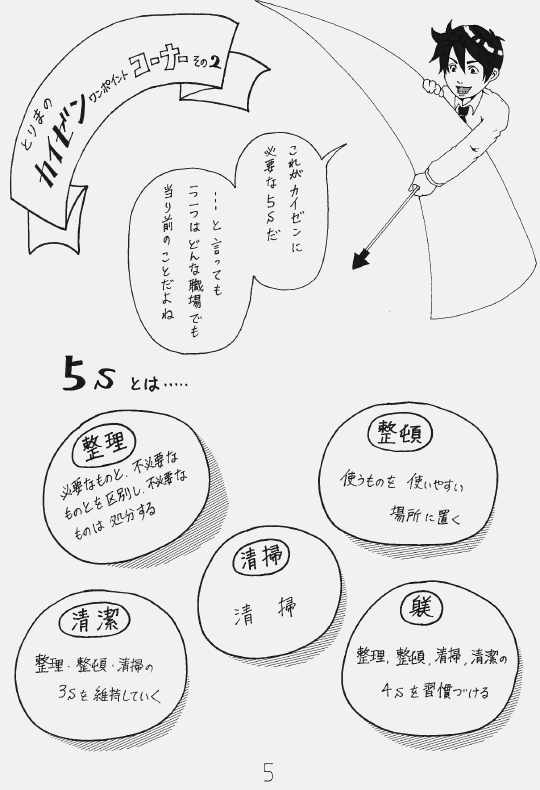 とりまの
カイゼン
ワンポイント
コーナー
その2
これがカイゼンに
必要な5Sだ
…と言っても
一つ一つはどんな職場でも
当り前のことだよね
5Sとは‥‥‥
整理
必要なものと、不必要な
ものとを区別し、不必要な
ものは処分する
整頓
使うものを使いやすい
場所に置く
清掃
清掃
清潔
整理・整頓・清掃の
3Sを維持していく
躾
整理,整頓,清掃,清潔の
4Sを習慣づける
5